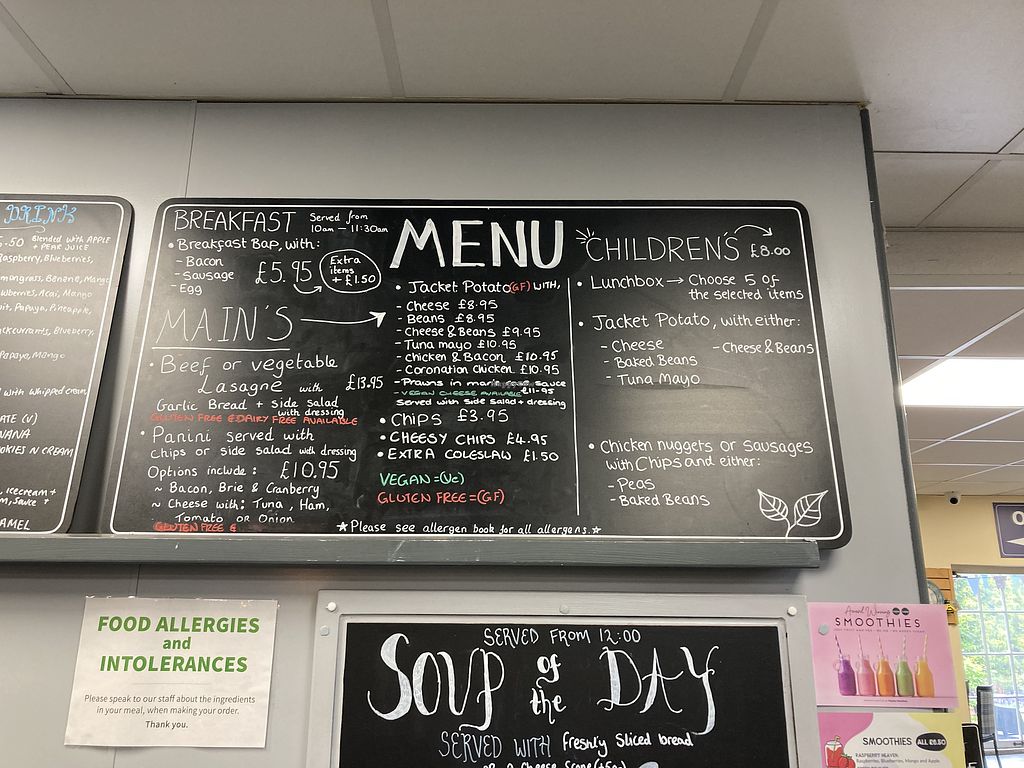 DRINK
Blended with APPLE
+ PEAR JUICE
Raspberry, Blueberries,
Lemongrass, Banana, Mango
Acai, Mango
Papaya, Pineapple,
Blackcurrants, Blueberry,
Papaya, Mango
with whipped cream
(V)
COOKIES N CREAM
icecream +
BREAKFAST Served from
10am – 11:30am
• Breakfast Bap, with:
- Bacon
- Sausage
- Egg
£5.95
Extra
items
+ £1.50
MAIN'S
• Beef or vegetable
Lasagne with £13.95
Garlic Bread + side salad
with dressing
GLUTEN FREE & DAIRY FREE AVAILABLE
• Panini served with
chips or side salad with dressing
Options include: £10.95
~ Bacon, Brie & Cranberry
~ Cheese with: Tuna, Ham,
Tomato or Onion
GLUTEN FREE &
MENU
• Jacket Potato (GF) WITH,
- Cheese £8.95
- Beans £8.95
- Cheese & Beans £9.95
- Tuna mayo £10.95
- Chicken & Bacon £10.95
- Coronation Chicken £10.95
- Prawns in sauce
- VEGAN CHEESE AVAILABLE £11.95
Served with side salad + dressing
• Chips £3.95
• CHEESY CHIPS £4.95
• EXTRA COLESLAW £1.50
VEGAN = (Ve)
GLUTEN FREE = (GF)
★ Please see allergen book for all allergens. ★
CHILDREN'S £8.00
• Lunchbox → Choose 5 of
the selected items
• Jacket Potato, with either:
- Cheese - Cheese & Beans
- Baked Beans
- Tuna Mayo
• Chicken nuggets or Sausages
with Chips and either:
- Peas
- Baked Beans
FOOD ALLERGIES
and
INTOLERANCES
Please speak to our staff about the ingredients
in your meal, when making your order.
Thank you.
SERVED FROM 12:00
SOUP of the DAY
SERVED WITH freshly sliced bread
or a Cheese Scone
Award Winning
SMOOTHIES
SMOOTHIES ALL £6.50
RASPBERRY HEAVEN
Raspberries, Blueberries, Mango and Apple